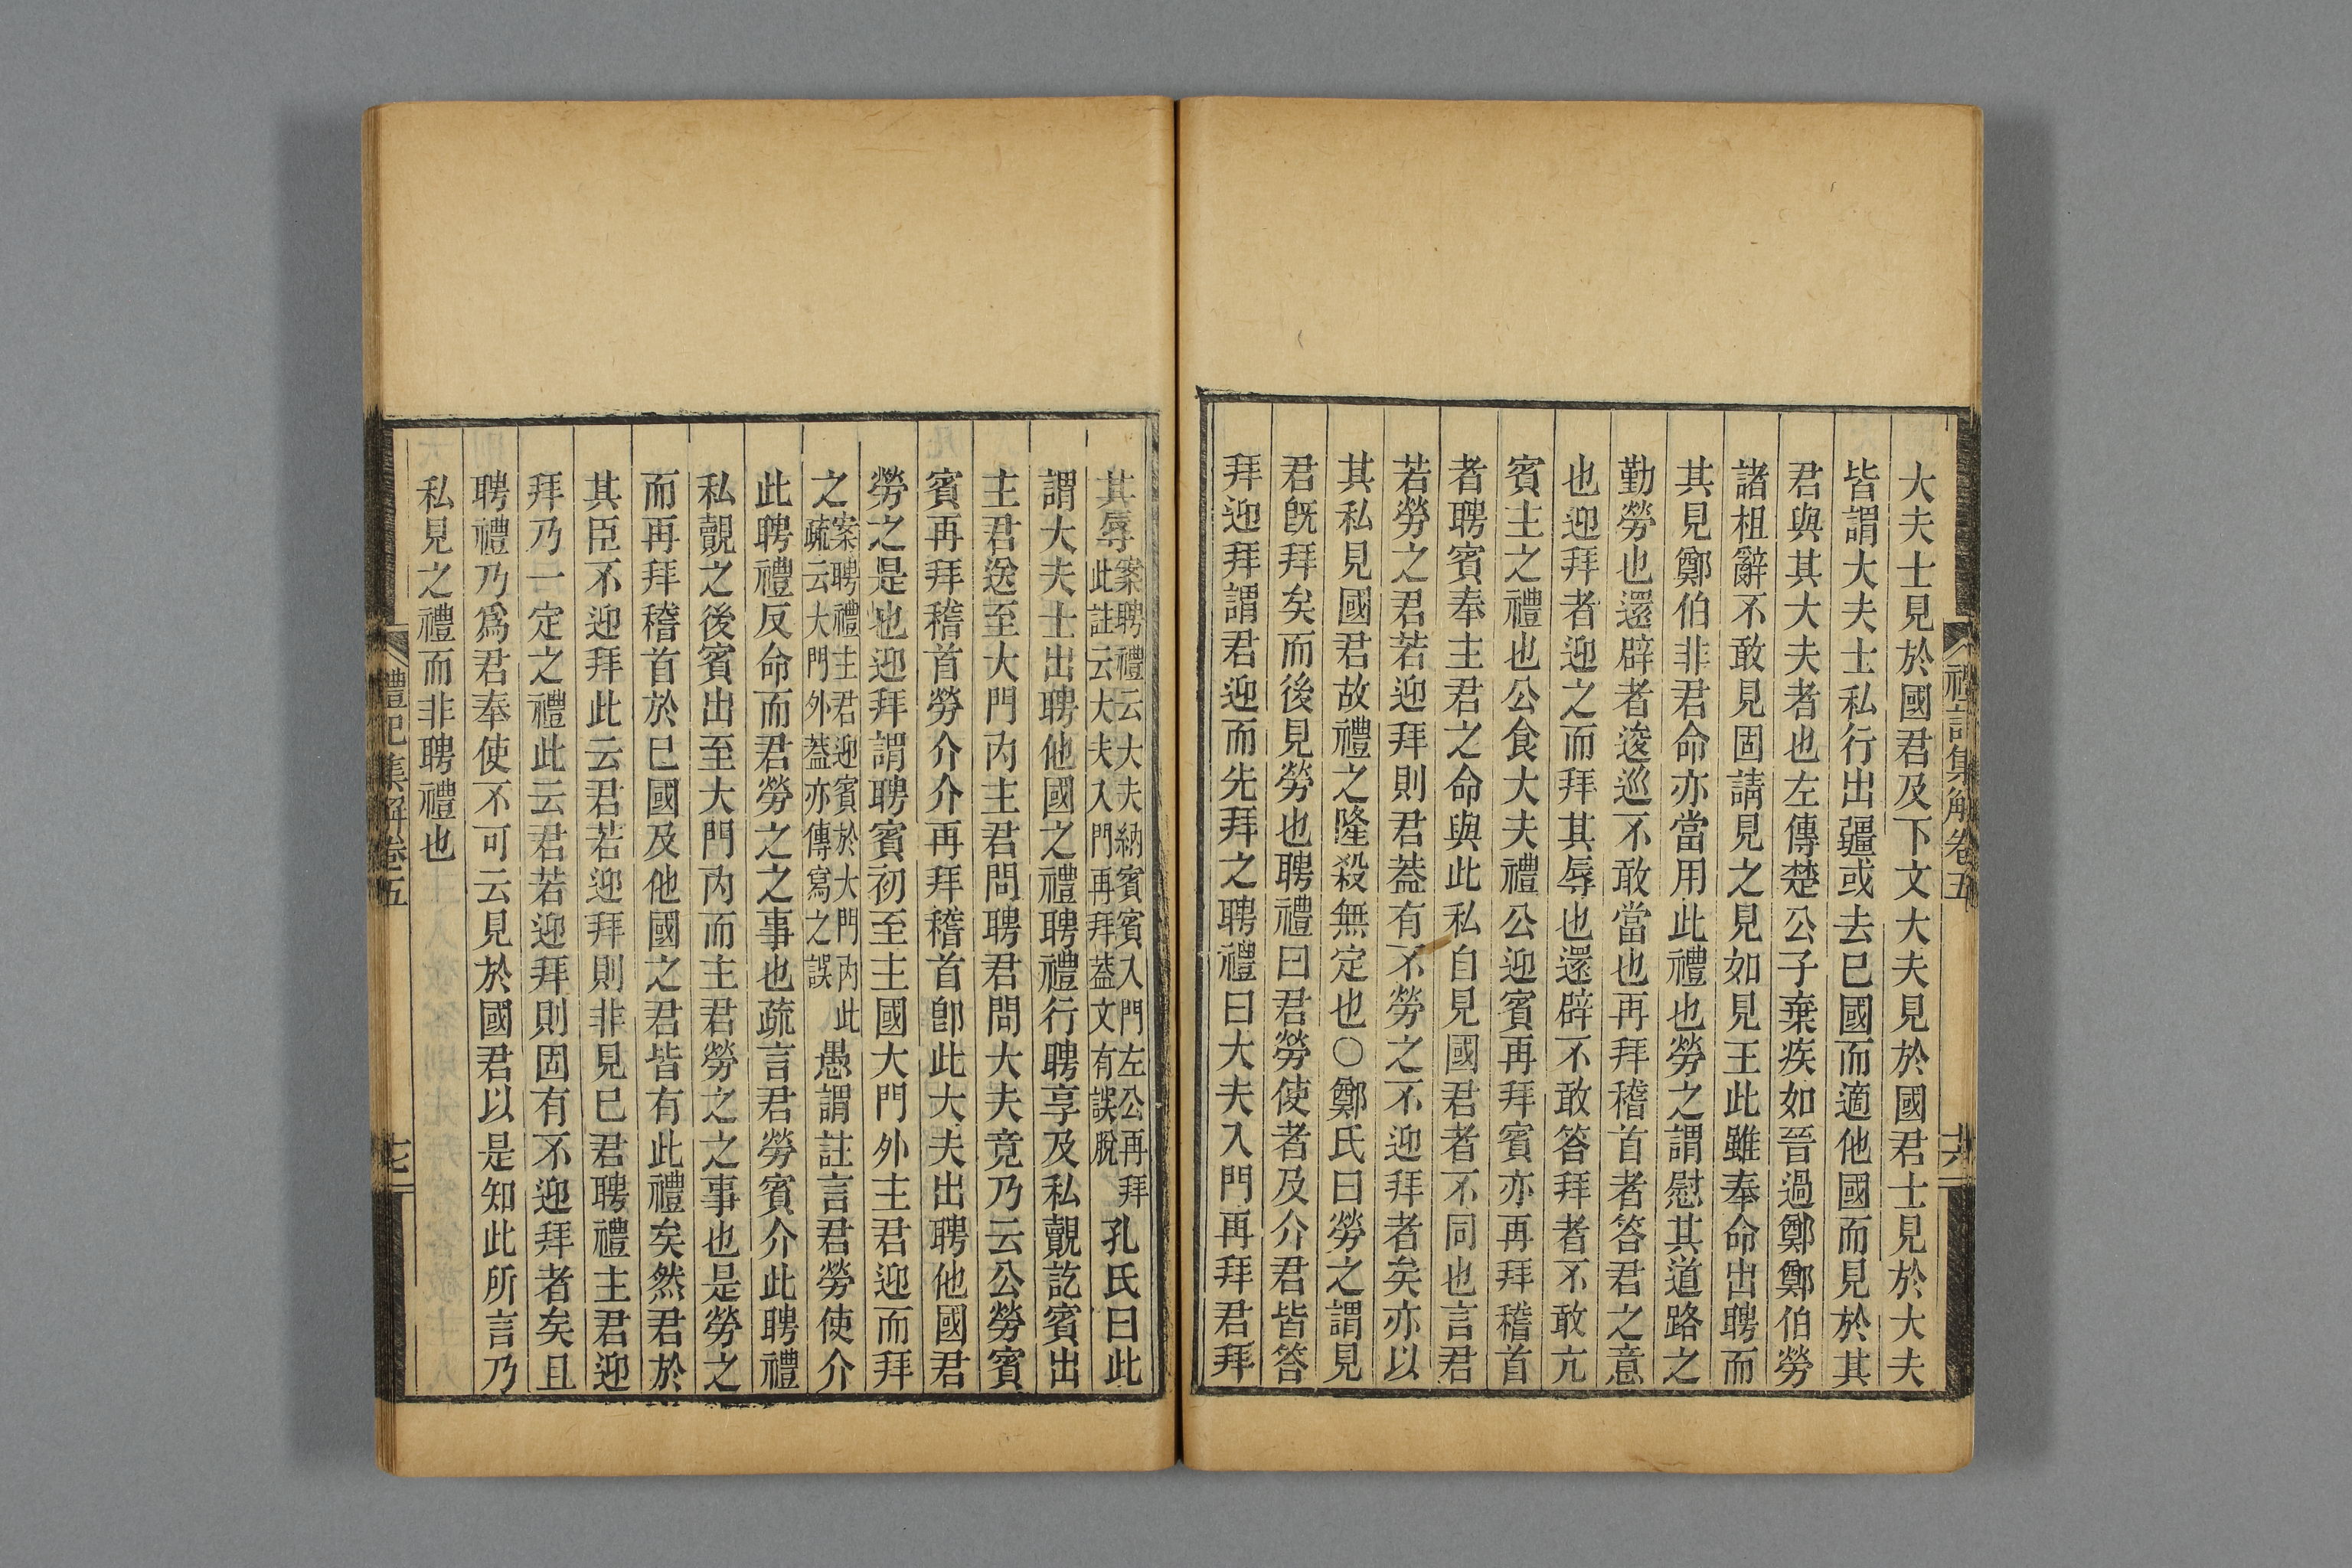 禮記集解卷五
六
大夫士見於國君及下文大夫見於國君士見於大夫
皆謂大夫士私行出疆或去已國而適他國而見於其
君與其大夫者也左傳楚公子棄疾如晉過鄭鄭伯勞
諸柤辭不敢見固請見之見如見王此雖奉命出聘而
其見鄭伯非君命亦當用此禮也勞之謂慰其道路之
勤勞也還辟者逡巡不敢當也再拜稽首者答君之意
也迎拜者迎之而拜其辱也還辟不敢答拜者不敢亢
賓主之禮也公食大夫禮公迎賓再拜賓亦再拜稽首
者聘賓奉主君之命與此私自見國君者不同也言君
若勞之君若迎拜則君蓋有不勞之不迎拜者矣亦以
其私見國君故禮之隆殺無定也○鄭氏曰勞之謂見
君旣拜矣而後見勞也聘禮曰君勞使者及介君皆答
拜迎拜謂君迎而先拜之聘禮曰大夫入門再拜君拜
其辱案聘禮云大夫納賓賓入門左公再拜
此註云大夫入門再拜蓋文有誤脫孔氏曰此
謂大夫士出聘他國之禮聘禮行聘享及私覿訖賓出
主君送至大門內主君問聘君問大夫竟乃云公勞賓
賓再拜稽首勞介介再拜稽首卽此大夫出聘他國君
勞之是也迎拜謂聘賓初至主國大門外主君迎而拜
之案聘禮主君迎賓於大門內此
疏云大門外蓋亦傳寫之誤愚謂註言君勞使介
此聘禮反命而君勞之之事也疏言君勞賓介此聘禮
私覿之後賓出至大門內而主君勞之之事也是勞之
而再拜稽首於已國及他國之君皆有此禮矣然君於
其臣不迎拜此云君若迎拜則非見已君聘禮主君迎
拜乃一定之禮此云君若迎拜則固有不迎拜者矣且
聘禮乃爲君奉使不可云見於國君以是知此所言乃
私見之禮而非聘禮也
禮記集解卷五
七